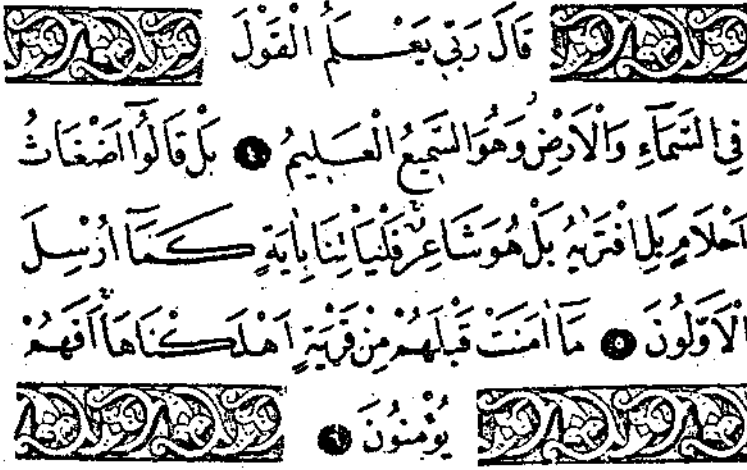 قَالَ رَبّ۪ي يَعْلَمُ الْقَوْلَ
فِي السَّمَٓاءِ وَالْاَرْضِۘ وَهُوَ السَّم۪يعُ الْعَل۪يمُ ٤ بَلْ قَالُٓوا اَضْغَاثُ
اَحْلَامٍ بَلِ افْتَرٰيهُ بَلْ هُوَ شَاعِرٌۚ فَلْيَأْتِنَا بِاٰيَةٍ كَمَٓا اُرْسِلَ
الْاَوَّلُونَ ٥ مَٓا اٰمَنَتْ قَبْلَهُمْ مِنْ قَرْيَةٍ اَهْلَكْنَاهَاۚ اَفَهُمْ
يُؤْمِنُونَ ٦